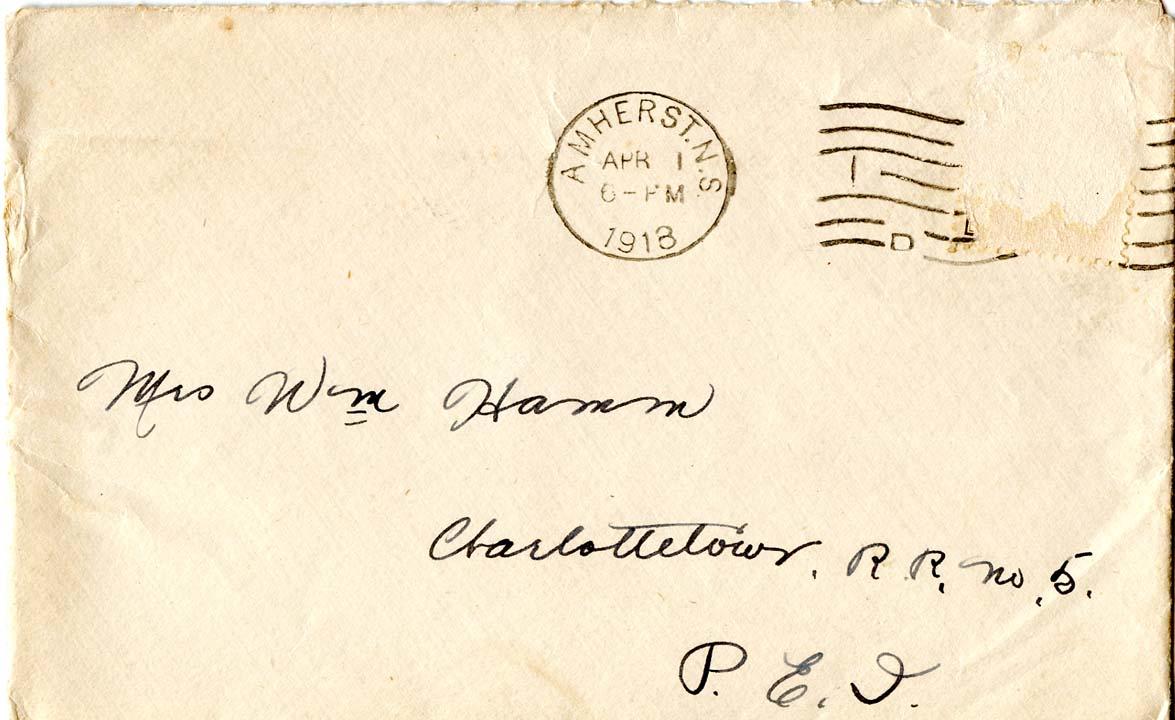 AMHERST. N.S.
APR 1
6-PM
1918
I
D
L
Mrs Wm Hamm
Charlottetown, R. R. No. 5.
P. E. I.